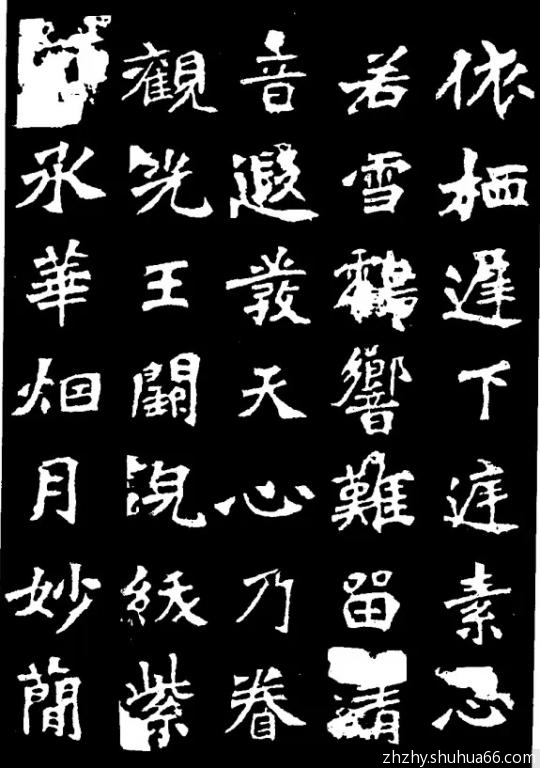 依栖遲下庭素心
若雪鶴響難留清
音遐發天心乃眷
觀光王闕紱紫
承華烟月妙簡
zhzhy.shuhua66.com